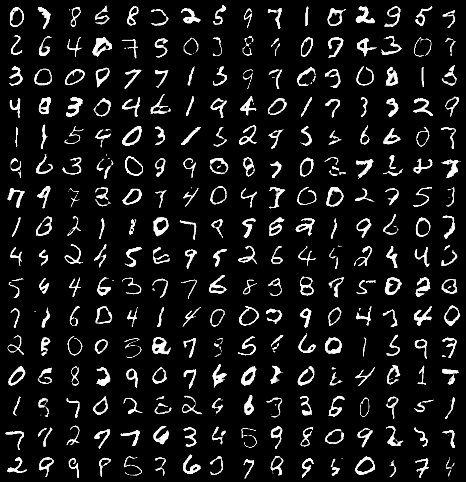 0 7 8 6 8 3 2 5 9 7 1 0 2 9 5 7
2 6 4 7 5 0 3 8 0 9 4 3 0 7
3 0 0 9 7 7 1 3 9 7 0 9 0 8 1
4 8 3 0 4 6 1 9 4 0 1 7 3 9 2 9
1 1 5 9 0 3 1 5 2 9 5 5 6 6 0 7
9 6 3 9 0 9 9 0 8 7 0 7 8 7
7 9 7 8 0 7 4 0 4 3 0 0 2 7 5 3
1 8 2 1 8 0 7 9 8 2 1 9 6 0 7
4 5 2 4 5 6 9 5 2 6 4 9 2 4 4 3
5 9 4 6 3 7 7 6 8 9 8 8 5 0 2 8
7 1 6 0 4 1 4 0 0 9 0 4 3 4 0
2 8 0 0 3 8 7 3 5 6 0 1 5 9 7
0 6 8 2 9 0 7 6 0 2 0 4 0 1 7
1 9 7 0 2 8 2 4 6 3 3 6 0 9 5 1
7 7 2 7 7 6 3 4 5 9 8 0 9 2 3 7
2 9 9 8 5 3 6 3 7 8 9 5 0 7 4